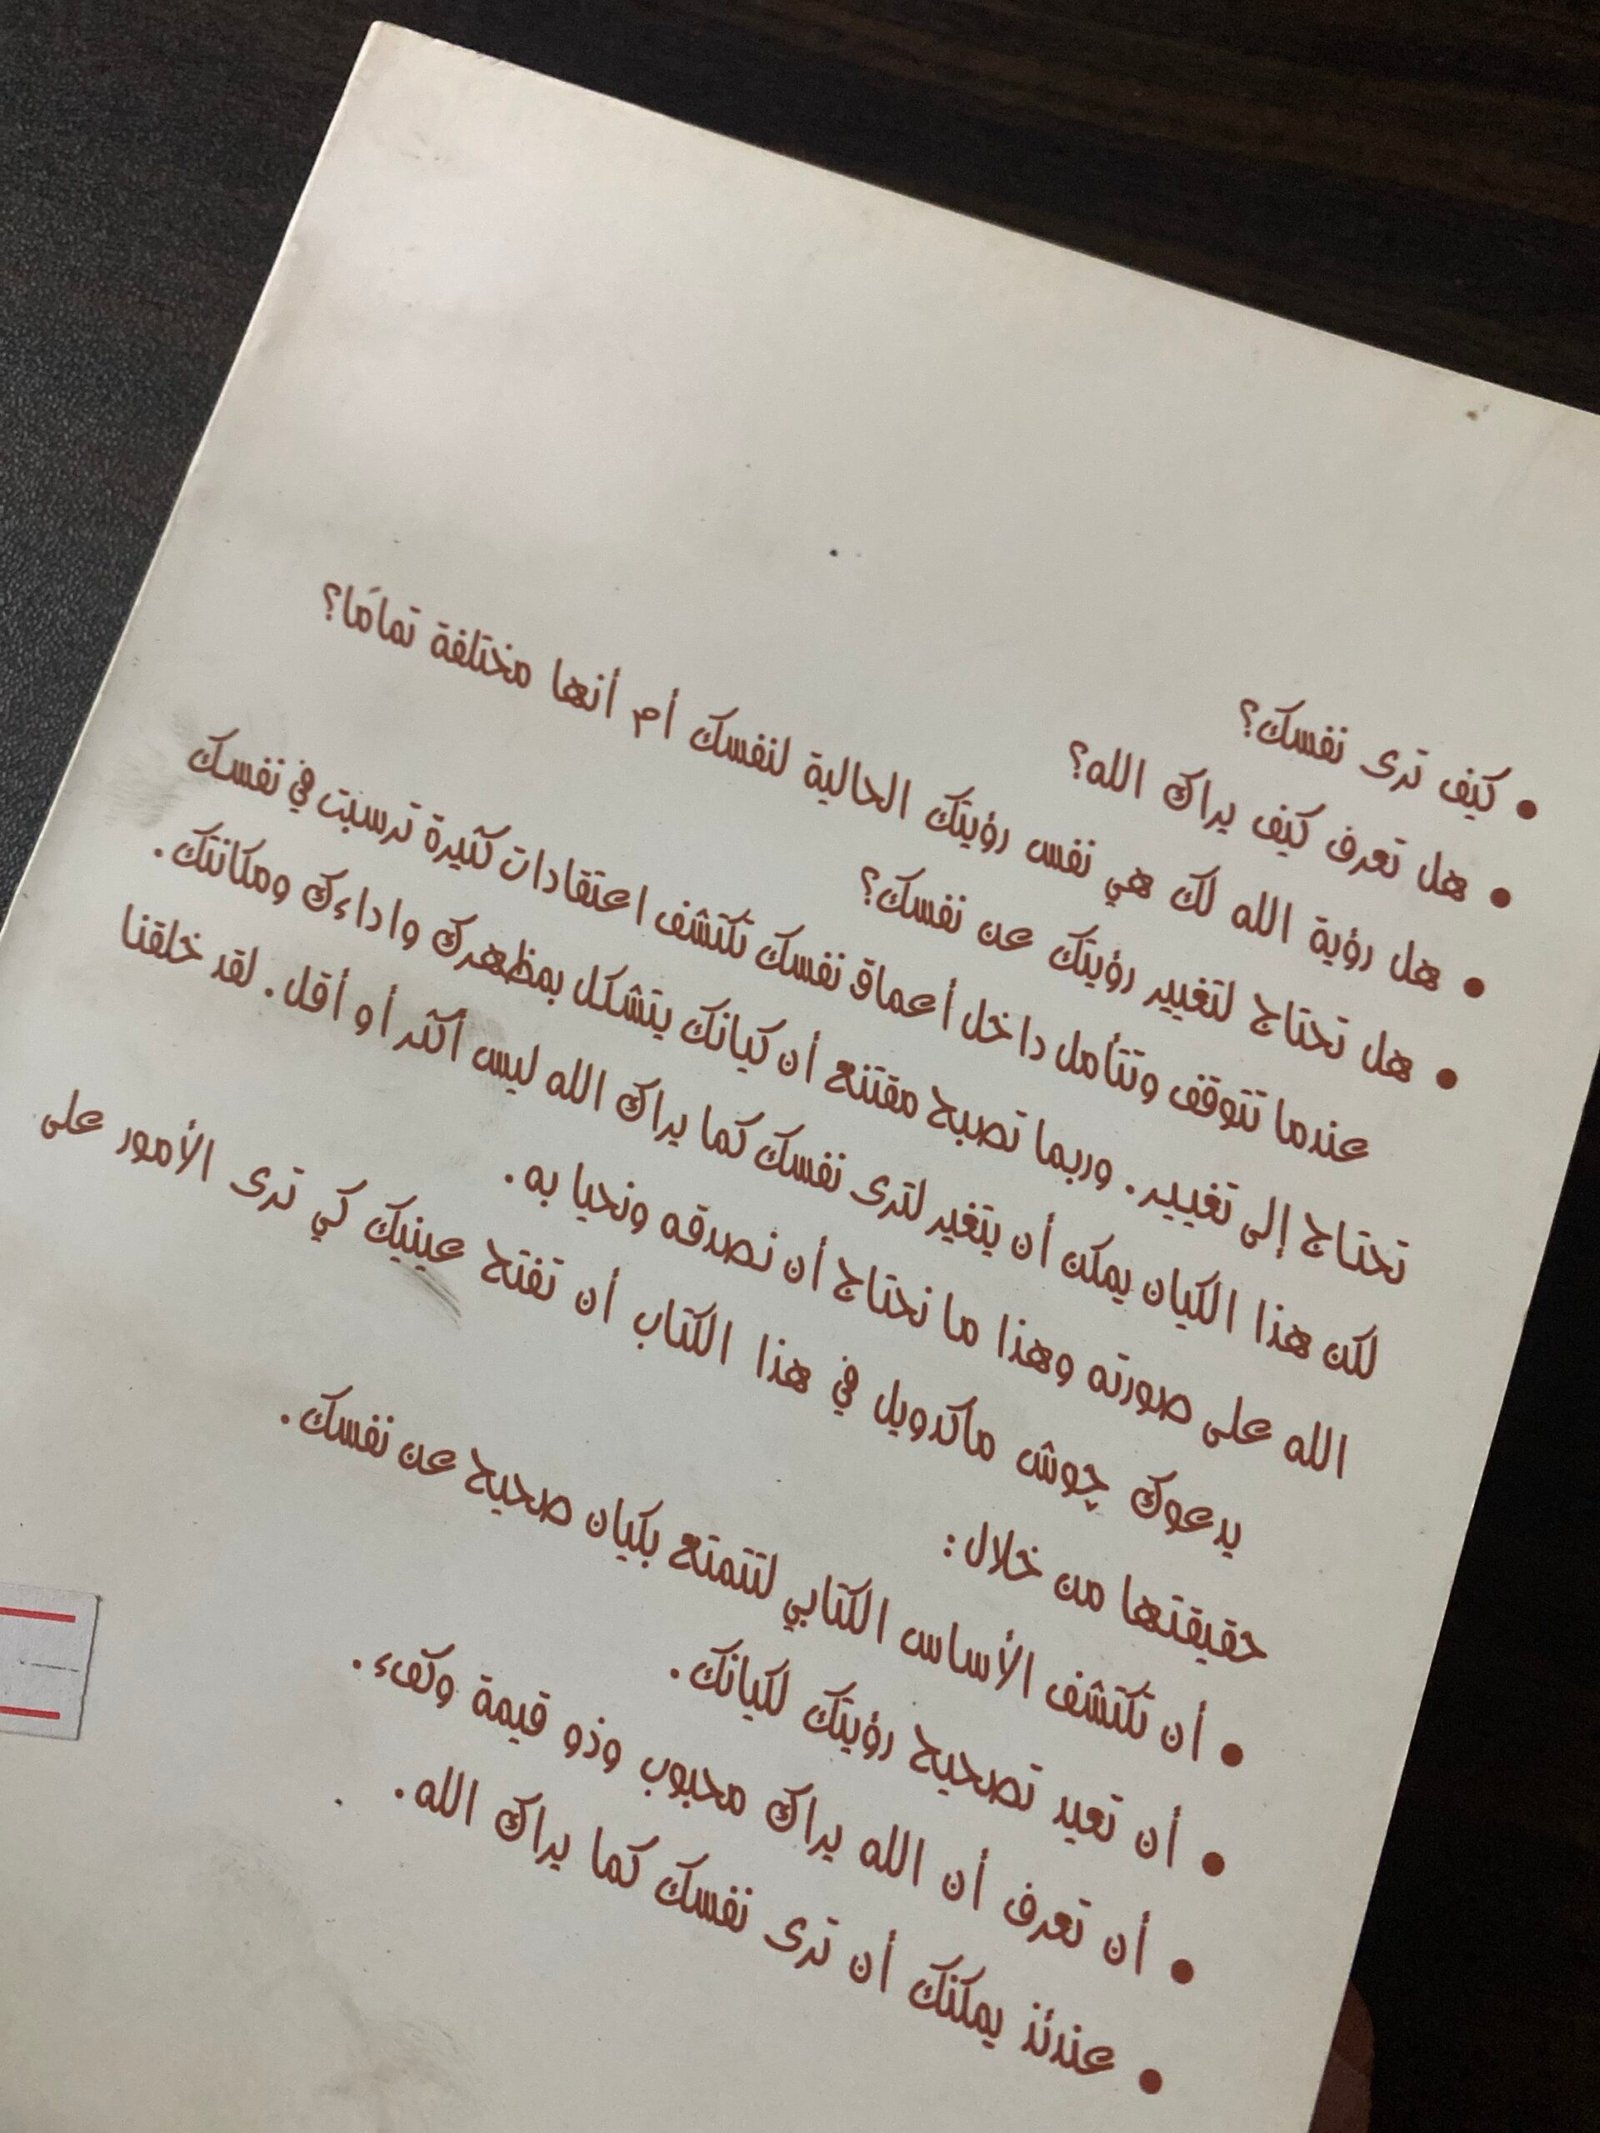 • كيف ترى نفسك؟
• هل تعرف كيف يراك الله؟
• هل رؤية الله لك هي نفس رؤيتك الحالية لنفسك أم أنها مختلفة تمامًا؟
• هل تحتاج لتغيير رؤيتك عن نفسك؟
عندما تتوقف وتتأمل داخل أعماق نفسك تكتشف اعتقادات كثيرة ترسبت في نفسك
تحتاج إلى تغيير. وربما تصبح مقتنع أن كيانك يتشكل بمظهرك واداءك ومكانتك.
لكن هذا الكيان يمكن أن يتغير لترى نفسك كما يراك الله ليس أكثر أو أقل. لقد خلقنا
الله على صورته وهذا ما نحتاج أن نصدقه ونحيا به.
يدعوك چوش ماكدويل في هذا الكتاب أن تفتح عينيك كي ترى الأمور على
حقيقتها من خلال:
• أن تكتشف الأساس الكتابي لتتمتع بكيان صحيح عن نفسك.
• أن تعيد تصحيح رؤيتك لكيانك.
• أن تعرف أن الله يراك محبوب وذو قيمة وكفء.
• عندئذ يمكنك أن ترى نفسك كما يراك الله.